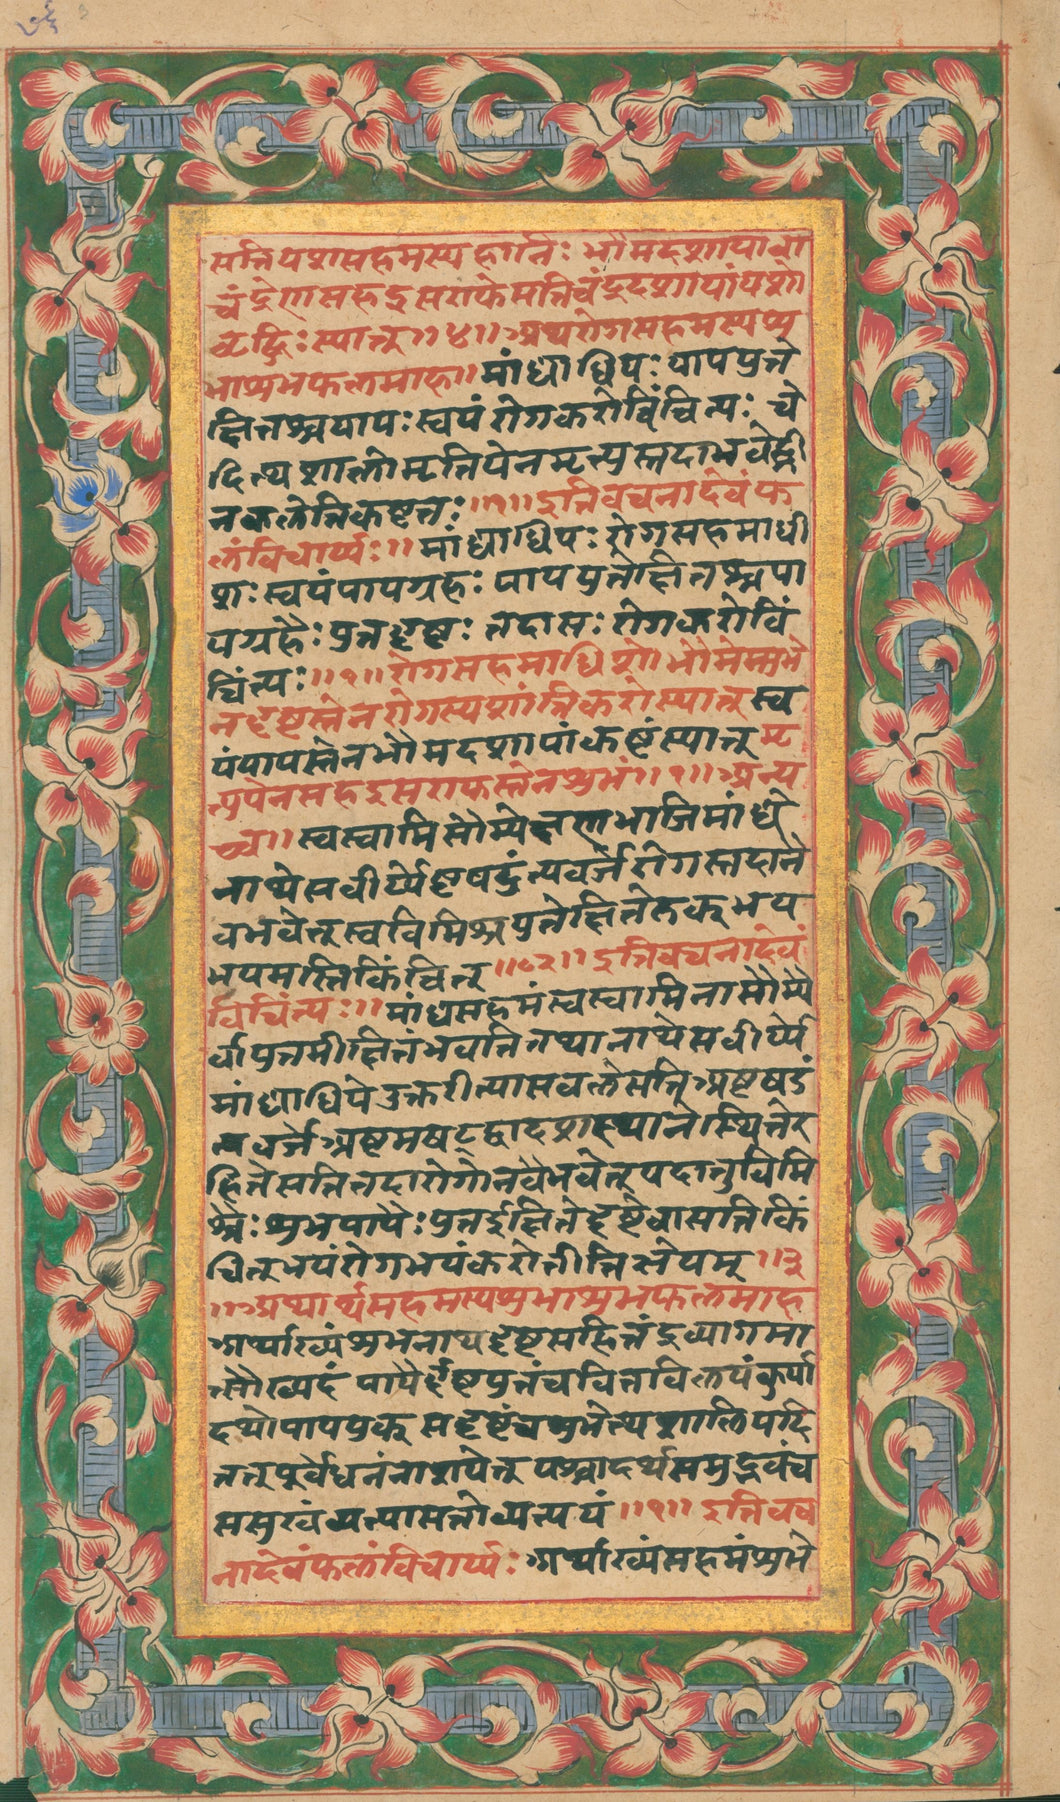 सतियशसहमस्यहानिः भौमदशायावा
चंद्रेणसहइसराफेसतिचंद्रदशायांयशो
वृद्धिः स्यात् ॥४॥ अथरोगसहमस्यशु
भाशुभफलमाह॥ मांद्याधिपः पापयुते
क्षितश्चपापः स्वयं रोगकरोविचिंत्यः चे
दित्थशालोमृतिपेनमृत्युस्तदाभवेद्धी
नबलेतिकष्टतः ॥१॥ इतिवचनादेवंफ
लंविचार्य्यः॥ मांद्याधिपः रोगसहमाधी
शः स्वयंपापग्रहः पापयुतेक्षितश्चपा
पग्रहैः युतदृष्टः तदासः रोगकरोविं
चिंत्यः ॥१॥ रोगसहमाधिशो भौमेसशुभे
नदृष्टस्तेनरोगस्यशांतिकरोस्यात् स्व
यंपापस्तेनभौमदशायांकष्टंस्यात् मृ
त्युपेनसहइसराफस्तेनशुभं॥१॥अन्य
च्च॥ स्वस्वामिसौम्येक्षणभाजिमांद्ये
नाथेसवीर्य्येष्टषडंत्यवर्जे रोगस्तदानै
वभवेत् स्वविमिश्रयुतेक्षितेरुक्भय
भयमस्तिकिंचित् ॥२॥ इतिवचनादेवं
विचिंत्यः॥ मांद्यसहमंस्वस्वामिनासौम्यै
र्वायुतमीक्षितंभवतितथानाथेसवीर्य्ये
मांद्याधिपेउक्तरीत्यासबलेसतिअष्टषडं
त्यवर्जेअष्टमषट्द्वादशस्थानेस्थितेर
हितेसतितदारोगोनैवभवेत् यदातुविमि
श्रैः शुभपापैः युतर्ईक्षितेदृष्टेवासतिकिं
चित् भयंरोगभयंकरोतीतिज्ञेयम् ॥३
॥अथार्थसहमस्यशुभाशुभफलमाह
अर्थाख्यंशुभनाथदृष्टसहितंद्रव्यागमा
त्सौख्यदं पापैर्दृष्टयुतंचवित्तविलयंकुर्या
दथोपापयुक् सदृष्टंचशुभेत्थशालियदि
तत् पूर्वंधनंनाशयेत् पश्चादर्थसमुद्भवंच
ससुखंव्यत्यासतोव्यत्ययं ॥१॥ इतिवच
नादेवंफलंविचार्य्यः अर्थाख्यंसहमंशुभे